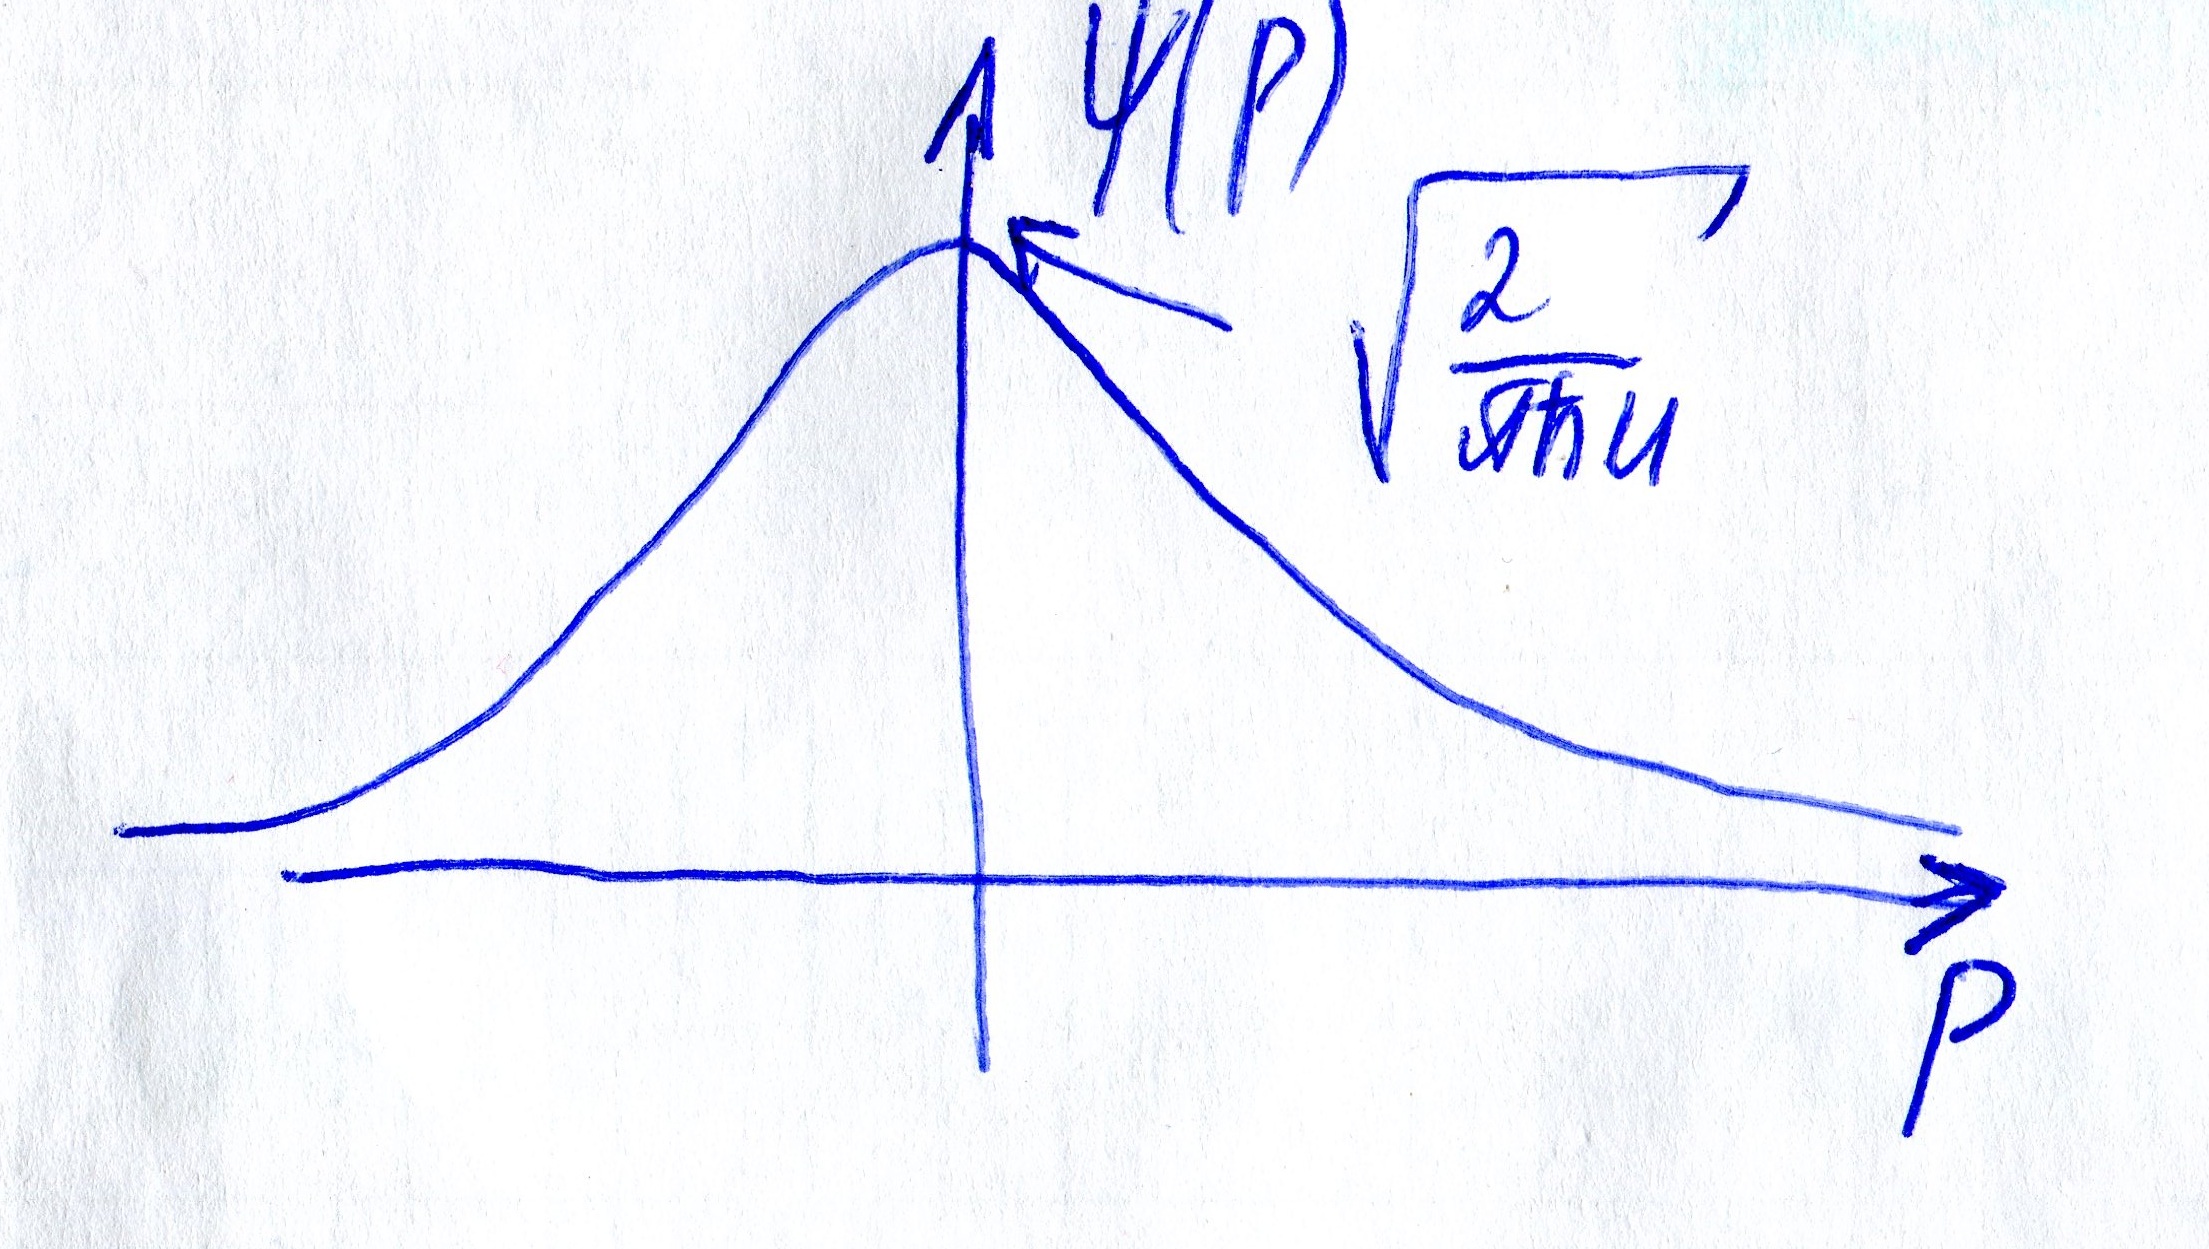 ψ(p)
√(2/πħu)
p